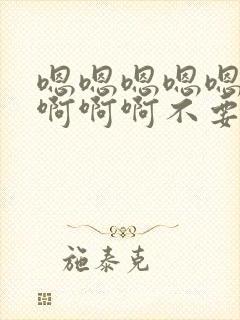 嗯嗯嗯嗯嗯
啊啊啊不要
施泰克